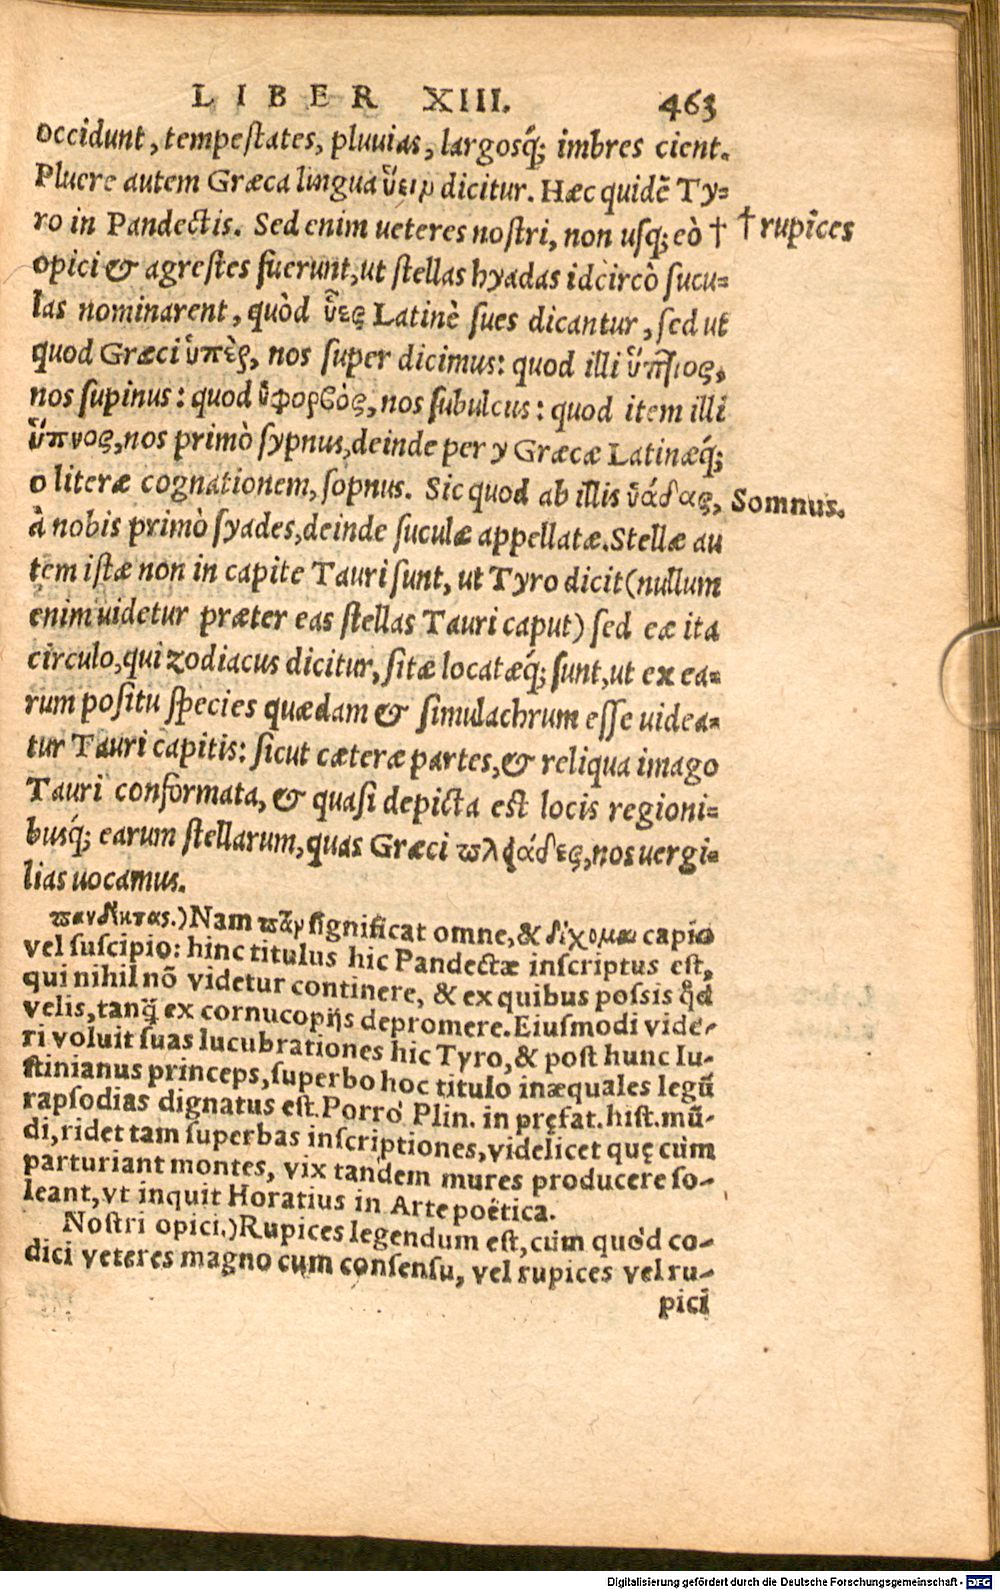 LIBER XIII. 463
occidunt, tempestates, pluuias, largosq́; imbres cient.
Pluere autem Græca lingua ὕειν dicitur. Hæc quidē Ty-
ro in Pandectis. Sed enim ueteres nostri, non usq; eò †
† rupices
opici & agrestes fuerunt, ut stellas hyadas idcircò sucu-
las nominarent, quòd ὕες Latinè sues dicantur, sed ut
quod Græci ὑπὲρ, nos super dicimus: quod illi ὕπτιος,
nos supinus: quod ὑφορβὸς, nos subulcus: quod item illi
ὕπνος, nos primò sypnus, deinde per y Græcæ Latinæq́;
o literæ cognationem, sopnus. Sic quod ab illis ὑάδας,
Somnus.
à nobis primò syades, deinde suculæ appellatæ. Stellæ au
tem istæ non in capite Tauri sunt, ut Tyro dicit (nullum
enim uidetur præter eas stellas Tauri caput) sed eæ ita
circulo, qui zodiacus dicitur, sitæ locatæq́; sunt, ut ex ea-
rum positu species quædam & simulachrum esse uidea-
tur Tauri capitis: sicut cæteræ partes, & reliqua imago
Tauri conformata, & quasi depicta est locis regioni-
busq́; earum stellarum, quas Græci πλειάδες, nos uergi-
lias uocamus.
πανδέκτας.) Nam πᾶν significat omne, & δέχομαι capio
vel suscipio: hinc titulus hic Pandectæ inscriptus est,
qui nihil nō videtur continere, & ex quibus possis qd
velis, tanq̃ ex cornucopijs depromere. Eiusmodi vide-
ri voluit suas lucubrationes hic Tyro, & post hunc Iu-
stinianus princeps, superbo hoc titulo inæquales legū
rapsodias dignatus est. Porrò Plin. in pręfat. hist. mū-
di, ridet tam superbas inscriptiones, videlicet quę cùm
parturiant montes, vix tandem mures producere so-
leant, vt inquit Horatius in Arte poëtica.
Nostri opici.) Rupices legendum est, cùm quòd co-
dici veteres magno cum consensu, vel rupices vel ru-
pici
Digitalisierung gefördert durch die Deutsche Forschungsgemeinschaft - DFG